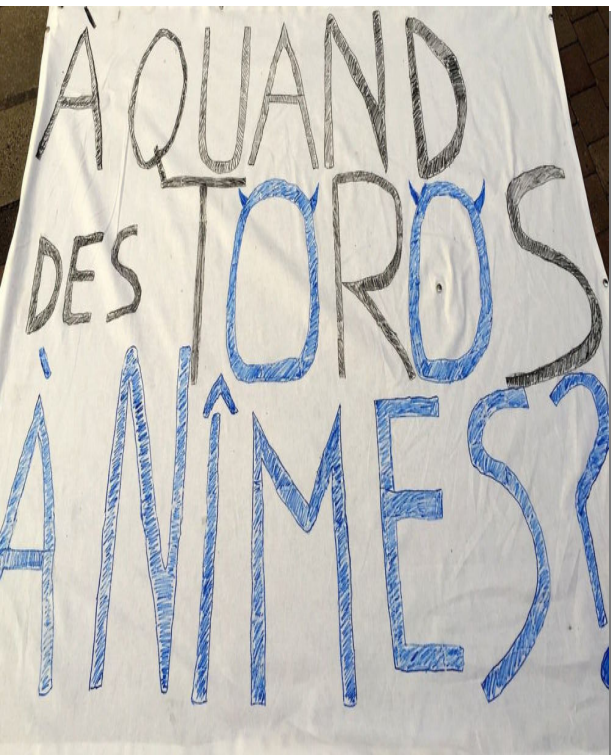 À QUAND
DES TOROS
À NÎMES?